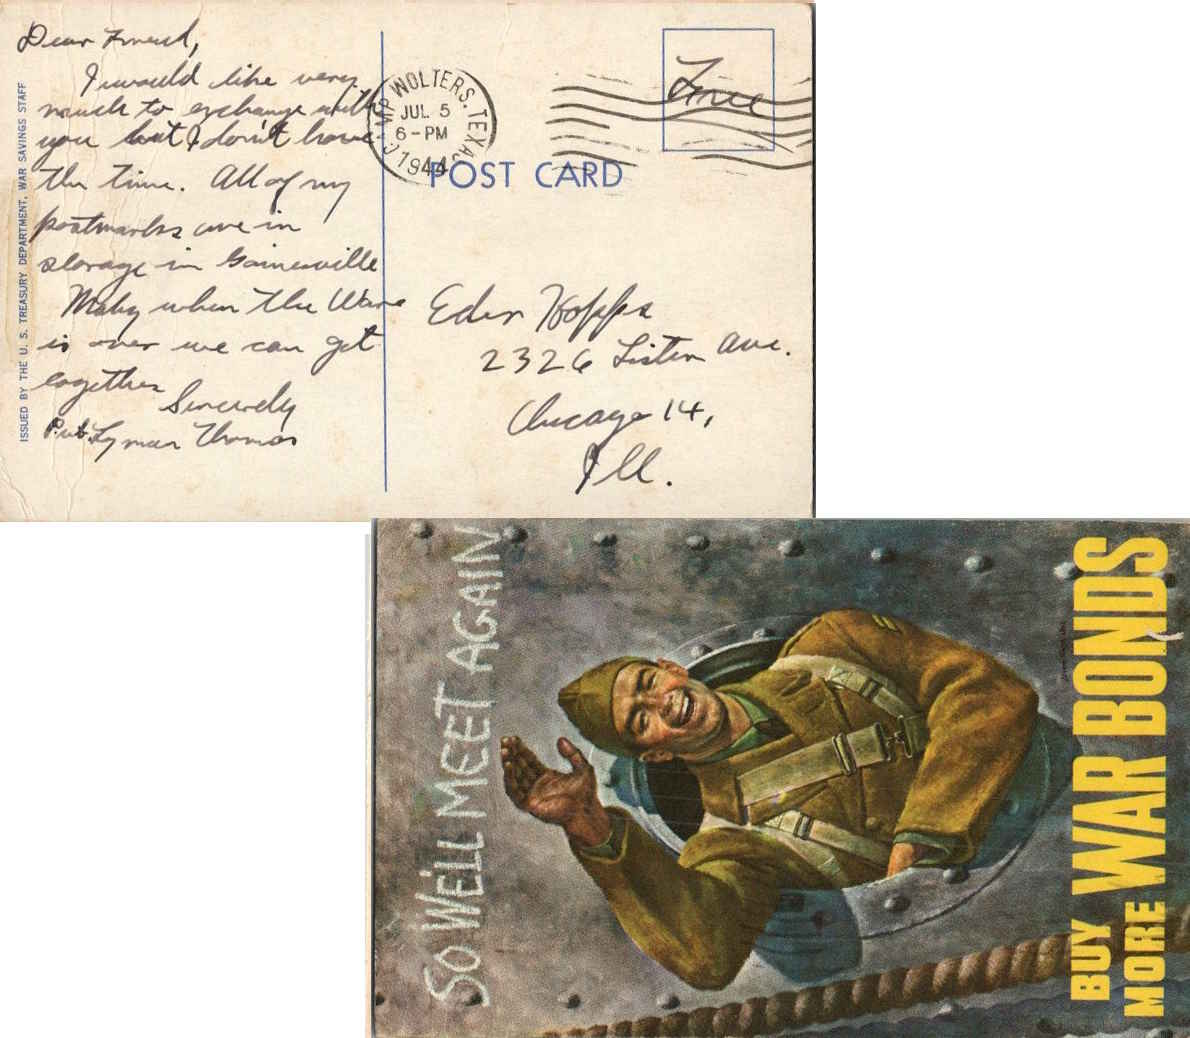 Dear Friend,
I would like very
much to exchange with
you but I don't have
the time. All of my
postmarks are in
storage in Gainesville
Maby when the War
is over we can get
together
Sincerely
Pvt. Lyman Thomas
ISSUED BY THE U. S. TREASURY DEPARTMENT, WAR SAVINGS STAFF
CAMP WOLTERS, TEXAS
JUL 5
6-PM
1944
Free
POST CARD
Hopps
2326 Ave.
Chicago 14,
Ill.
SO WE'LL MEET AGAIN
BUY
MORE WAR BONDS